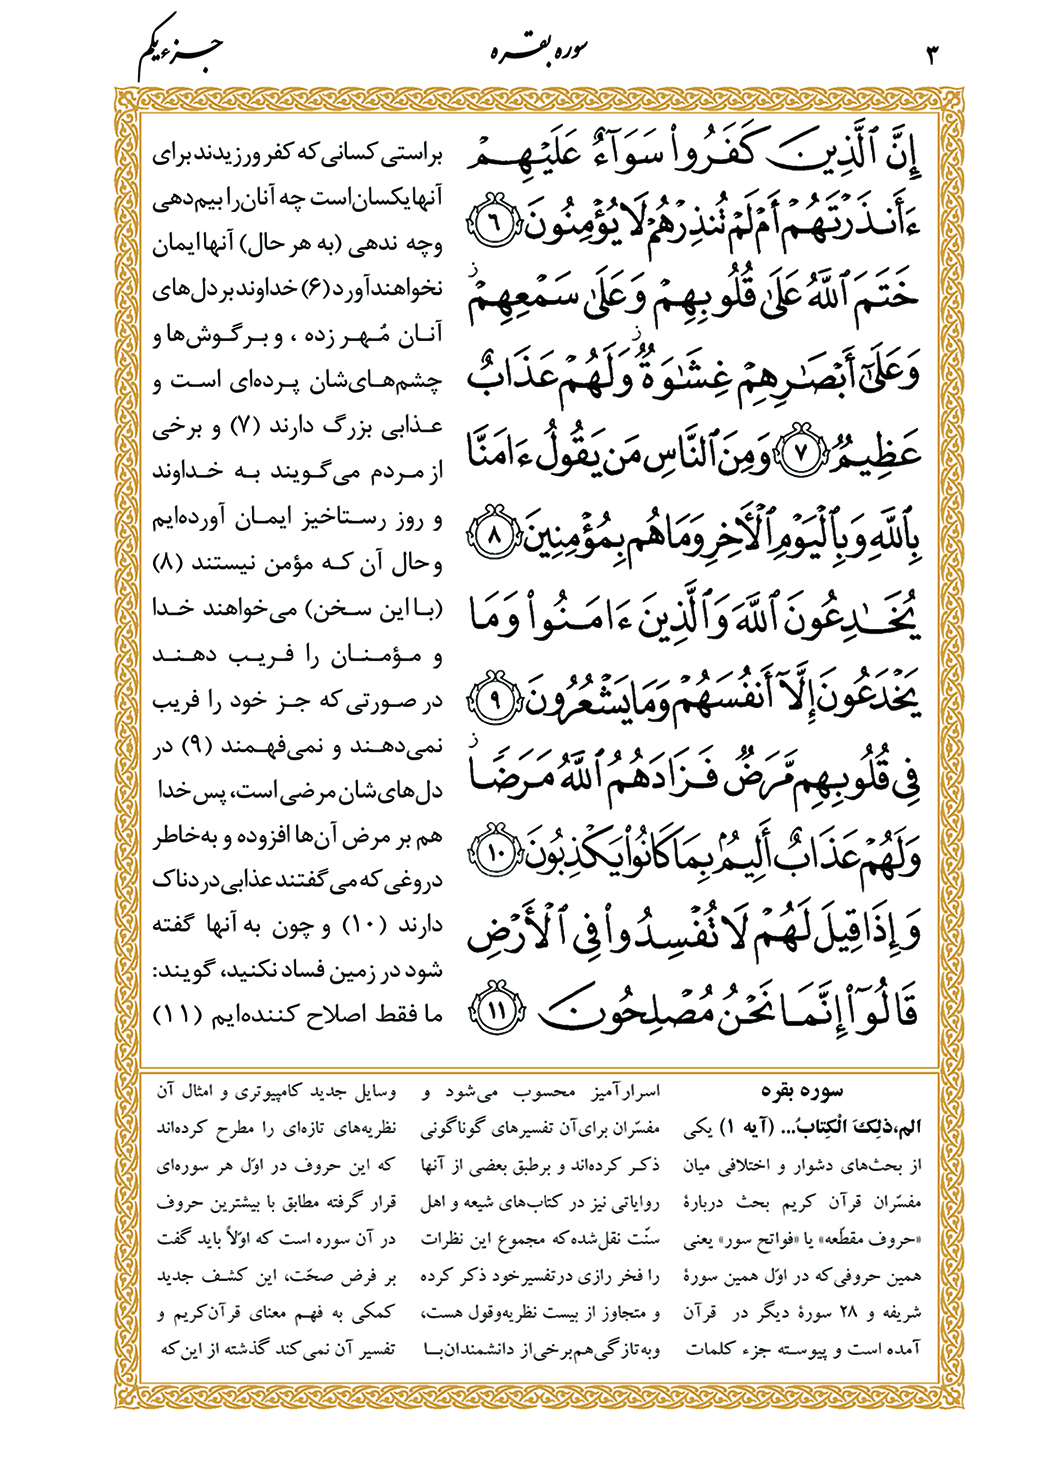 ۳
سوره بقره
جزء یکم
إِنَّ ٱلَّذِينَ كَفَرُوا۟ سَوَآءٌ عَلَيْهِمْ
ءَأَنذَرْتَهُمْ أَمْ لَمْ تُنذِرْهُمْ لَا يُؤْمِنُونَ ﴿۶﴾
خَتَمَ ٱللَّهُ عَلَىٰ قُلُوبِهِمْ وَعَلَىٰ سَمْعِهِمْ ز
وَعَلَىٰٓ أَبْصَـٰرِهِمْ غِشَـٰوَةٌ ز وَلَهُمْ عَذَابٌ
عَظِيمٌ ﴿۷﴾ وَمِنَ ٱلنَّاسِ مَن يَقُولُ ءَامَنَّا
بِٱللَّهِ وَبِٱلْيَوْمِ ٱلْـَٔاخِرِ وَمَا هُم بِمُؤْمِنِينَ ﴿۸﴾
يُخَـٰدِعُونَ ٱللَّهَ وَٱلَّذِينَ ءَامَنُوا۟ وَمَا
يَخْدَعُونَ إِلَّآ أَنفُسَهُمْ وَمَا يَشْعُرُونَ ﴿۹﴾
فِى قُلُوبِهِم مَّرَضٌ فَزَادَهُمُ ٱللَّهُ مَرَضًا ز
وَلَهُمْ عَذَابٌ أَلِيمٌۢ بِمَا كَانُوا۟ يَكْذِبُونَ ﴿۱۰﴾
وَإِذَا قِيلَ لَهُمْ لَا تُفْسِدُوا۟ فِى ٱلْأَرْضِ
قَالُوٓا۟ إِنَّمَا نَحْنُ مُصْلِحُونَ ﴿۱۱﴾
براستی کسانی که کفر ورزیدند برای
آنها یکسان است چه آنان را بیم دهی
وچه ندهی (به هر حال) آنها ایمان
نخواهند آورد (۶) خداوند بر دل‌های
آنان مُهر زده ، و بر گوش‌ها و
چشم‌های‌شان پرده‌ای است و
عذابی بزرگ دارند (۷) و برخی
از مردم می‌گویند به خداوند
و روز رستاخیز ایمان آورده‌ایم
و حال آن که مؤمن نیستند (۸)
(با این سخن) می‌خواهند خدا
و مؤمنان را فریب دهند
در صورتی که جز خود را فریب
نمی‌دهند و نمی‌فهمند (۹) در
دل‌های‌شان مرضی است، پس خدا
هم بر مرض آن‌ها افزوده و به‌خاطر
دروغی که می‌گفتند عذابی دردناک
دارند (۱۰) و چون به آنها گفته
شود در زمین فساد نکنید، گویند:
ما فقط اصلاح کننده‌ایم (۱۱)
سوره بقره
الم،ذلِکَ الْکِتابُ... (آیه ۱) یکی
از بحث‌های دشوار و اختلافی میان
مفسّران قرآن کریم بحث دربارهٔ
«حروف مقطّعه» یا «فواتح سور» یعنی
همین حروفی که در اوّل همین سورهٔ
شریفه و ۲۸ سورهٔ دیگر در قرآن
آمده است و پیوسته جزء کلمات
اسرارآمیز محسوب می‌شود و
مفسّران برای آن تفسیرهای گوناگونی
ذکر کرده‌اند و برطبق بعضی از آنها
روایاتی نیز در کتاب‌های شیعه و اهل
سنّت نقل شده که مجموع این نظرات
را فخر رازی در تفسیر خود ذکر کرده
و متجاوز از بیست نظریه و قول هست،
و به تازگی هم برخی از دانشمندان با
وسایل جدید کامپیوتری و امثال آن
نظریه‌های تازه‌ای را مطرح کرده‌اند
که این حروف در اوّل هر سوره‌ای
قرار گرفته مطابق با بیشترین حروف
در آن سوره است که اوّلاً باید گفت
بر فرض صحّت، این کشف جدید
کمکی به فهم معنای قرآن کریم و
تفسیر آن نمی‌کند گذشته از این که